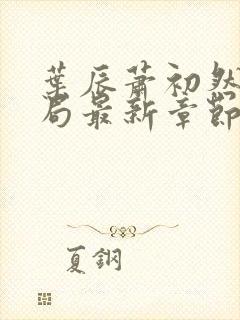 葉辰蕭初然
局最新章節
夏鋼